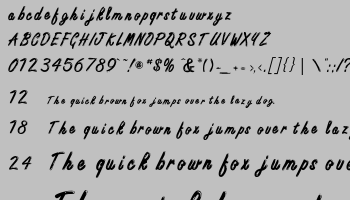 abcdefghijklmnopqrstuvwxyz
ABCDEFGHIJKLMNOPQRSTUVWXYZ
0123456789
12 The quick brown fox jumps over the lazy dog.
18 The quick brown fox jumps over the laz
24 The quick brown fox jumps over